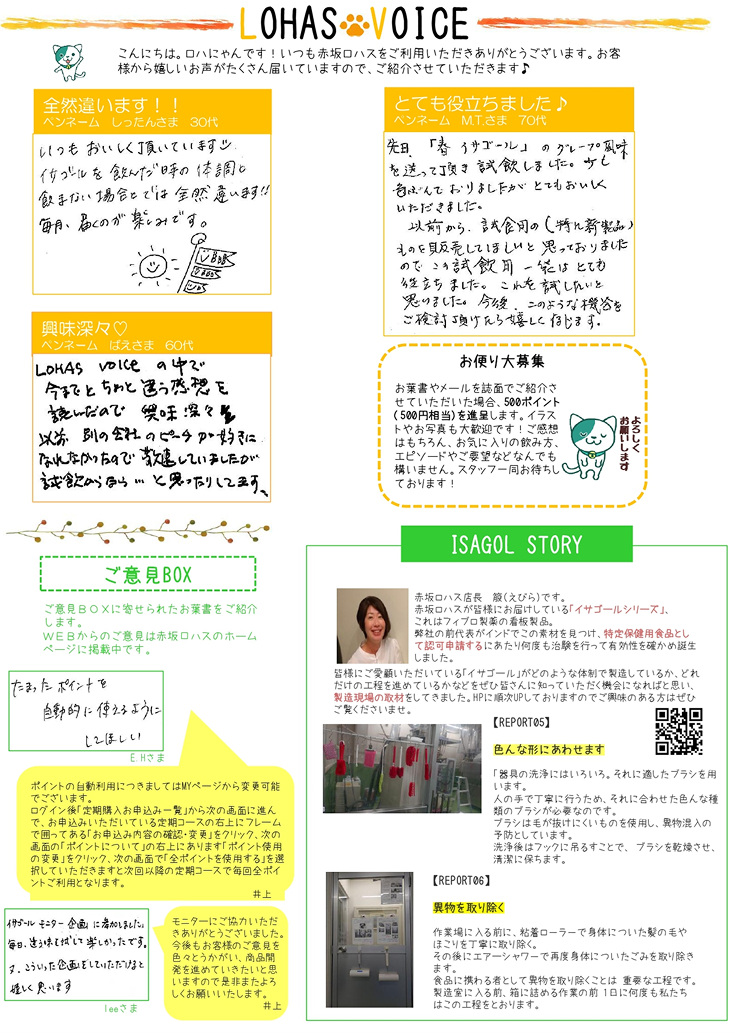 LOHAS VOICE
こんにちは。ロハにゃんです！いつも赤坂ロハスをご利用いただきありがとうございます。お客
様から嬉しいお声がたくさん届いていますので、ご紹介させていただきます♪
全然違います！！
ペンネーム　しったんさま　30代
いつも おいしく頂いています
イサゴールを飲んだ時の体調と
飲まない場合とでは全然違います!!
毎月、届くのが楽しみです。
とても役立ちました♪
ペンネーム　M.T.さま　70代
先日、「春 イサゴール」のグレープ風味
を送って頂き試飲しました。少し
おりましたがとてもおいしく
いただきました。
以前から、試食用の(特に新製品)
ものを販売してほしいと思っておりました
のでこの試飲用一袋はとても
役立ちました。これを試したいと
思いました。今後、このような機会を
ご検討頂けたら嬉しく存じます。
興味深々♡
ペンネーム　ばえさま　60代
LOHAS VOICE の中で
今までとちょっと違う感想を
読んだので 興味深々
以前 別の会社のピーチが好きに
なれなかったので敬遠していましたが
試飲からなら…と思ったりしてます、
お便り大募集
お葉書やメールを誌面でご紹介さ
せていただいた場合、500ポイント
(500円相当)を進呈します。イラス
トやお写真も大歓迎です！ご感想
はもちろん、お気に入りの飲み方、
エピソードやご要望などなんでも
構いません。スタッフ一同お待ちし
ております！
よろしく
お願いします
ご意見BOX
ご意見ＢＯＸに寄せられたお葉書をご紹介
します。
ＷＥＢからのご意見は赤坂ロハスのホーム
ページに掲載中です。
たまったポイントを
自動的に使えるように
してほしい
E.Hさま
ポイントの自動利用につきましてはMYページから変更可能
でございます。
ログイン後「定期購入お申込み一覧」から次の画面に進ん
で、お申込みいただいている定期コースの右上にフレーム
で囲ってある「お申込み内容の確認・変更」をクリック、次の
画面の「ポイントについて」の右上にあります「ポイント使用
の変更」をクリック、次の画面で「全ポイントを使用する」を選
択していただきますと次回以降の定期コースで毎回全ポイ
ントご利用となります。
井上
イサゴール モニター企画に参加しました。
毎日、違う味を試して楽しかったです。
又、こういった企画をしていただけると
嬉しく思います
leeさま
モニターにご協力いただ
きありがとうございました。
今後もお客様のご意見を
色々とうかがい、商品開
発を進めていきたいと思
いますので是非またよろ
しくお願いいたします。
井上
ISAGOL STORY
赤坂ロハス店長　箙(えびら)です。
赤坂ロハスが皆様にお届けしている「イサゴールシリーズ」、
これはフィブロ製薬の看板製品。
弊社の前代表がインドでこの素材を見つけ、特定保健用食品とし
て認可申請するにあたり何度も治験を行って有効性を確かめ誕生
しました。
皆様にご愛顧いただいている「イサゴール」がどのような体制で製造しているか、どれ
だけの工程を進めているかなどをぜひ皆さんに知っていただく機会になればと思い、
製造現場の取材をしてきました。HPに順次UPしておりますのでご興味のある方はぜひ
ご覧くださいませ。
【REPORT05】
色んな形にあわせます
「器具の洗浄にはいろいろ。それに適したブラシを用
います。
人の手で丁寧に行うため、それに合わせた色んな種
類のブラシが必要なのです。
ブラシは毛が抜けにくいものを使用し、異物混入の
予防としています。
洗浄後はフックに吊るすことで、ブラシを乾燥させ、
清潔に保ちます。
【REPORT06】
異物を取り除く
作業場に入る前に、粘着ローラーで身体についた髪の毛や
ほこりを丁寧に取り除く。
その後にエアーシャワーで再度身体についたごみを取り除き
ます。
食品に携わる者として異物を取り除くことは 重要な工程です。
製造室に入る前、箱に詰める作業の前 1日に何度も私たち
はこの工程をとおります。